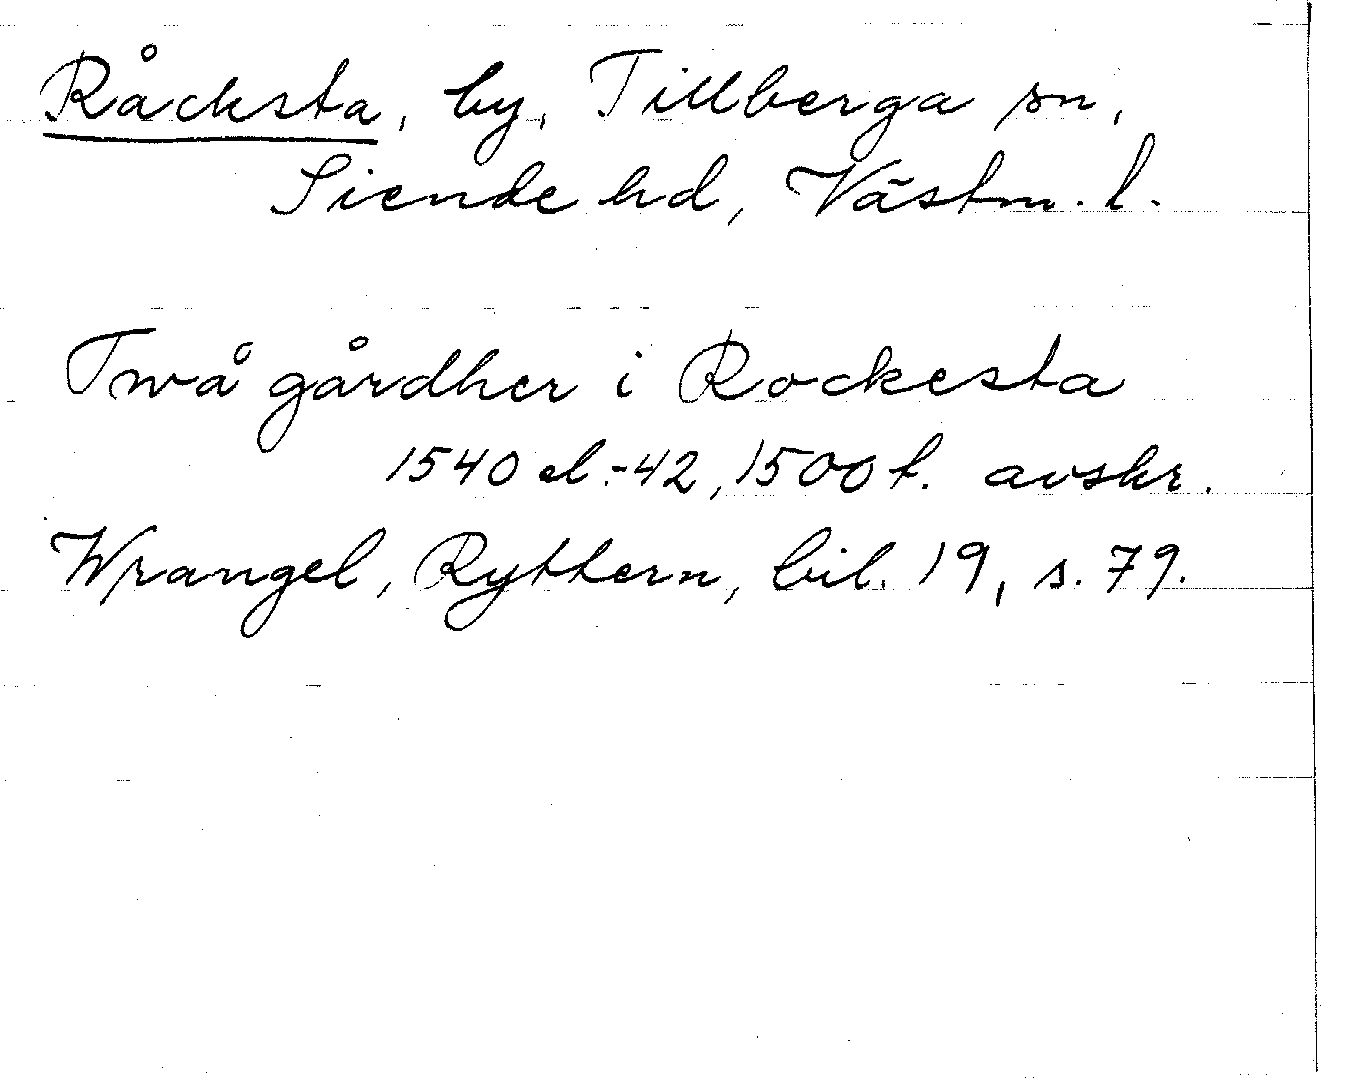 Råcksta, by, Tillberga sn,
Siende hd, Västm. l.
Twå gårdher i Rockesta
1540 el.-42, 1500 t. avskr.
Wrangel, Ryttern, bil. 19, s. 79.